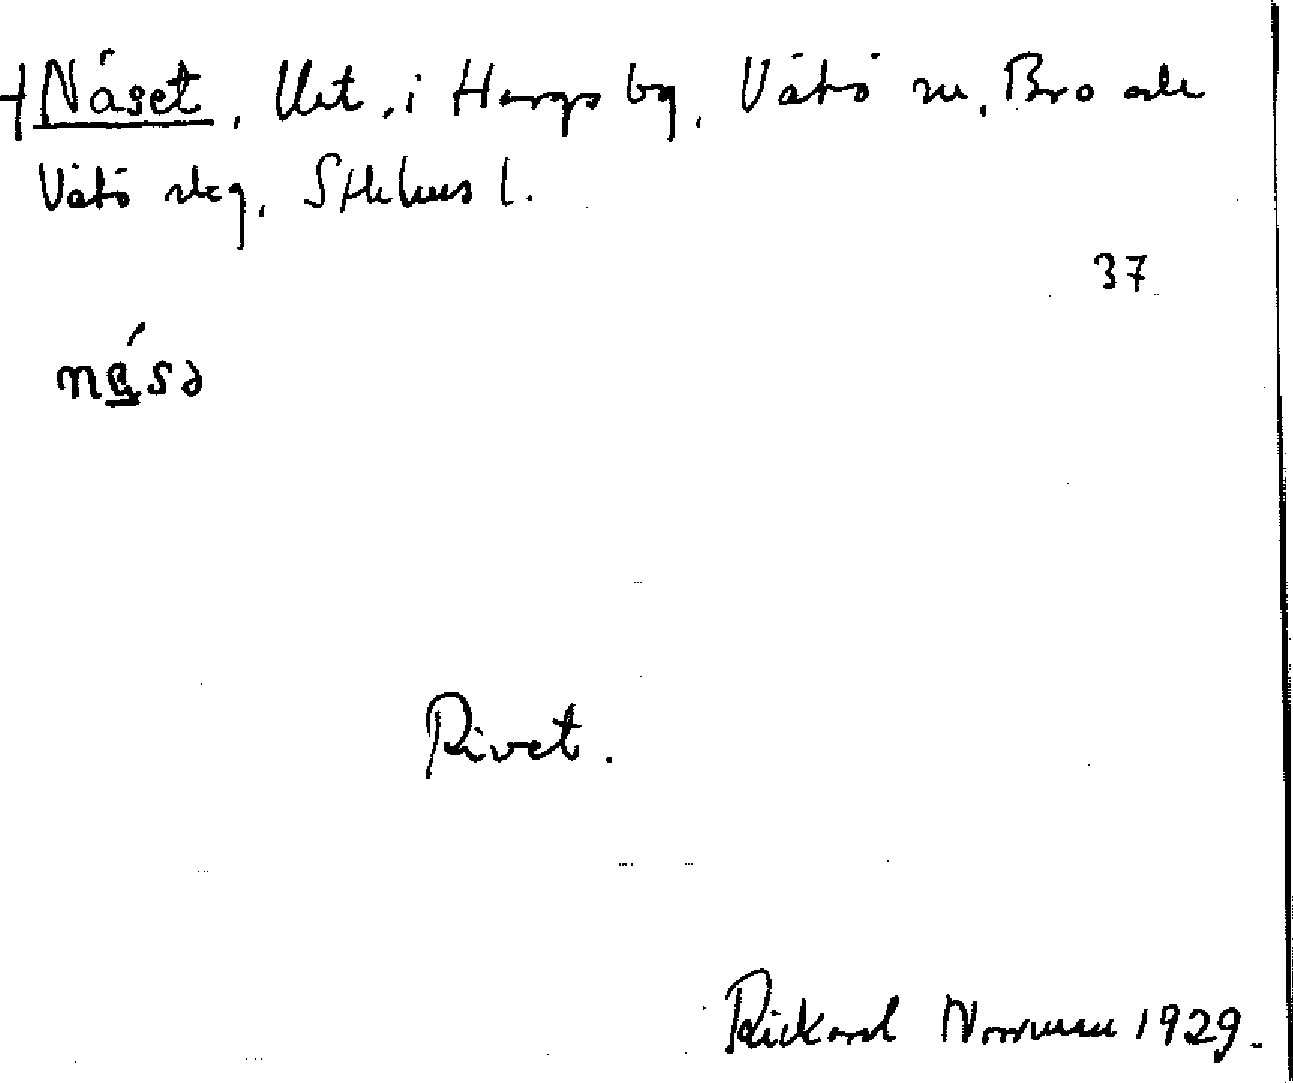 †Näset, Utr. i Hargs by, Vätö sn, Bro och
Vätö skg, Sthlms l.
37
näsə
Rivet.
Rickard Norrman 1929.